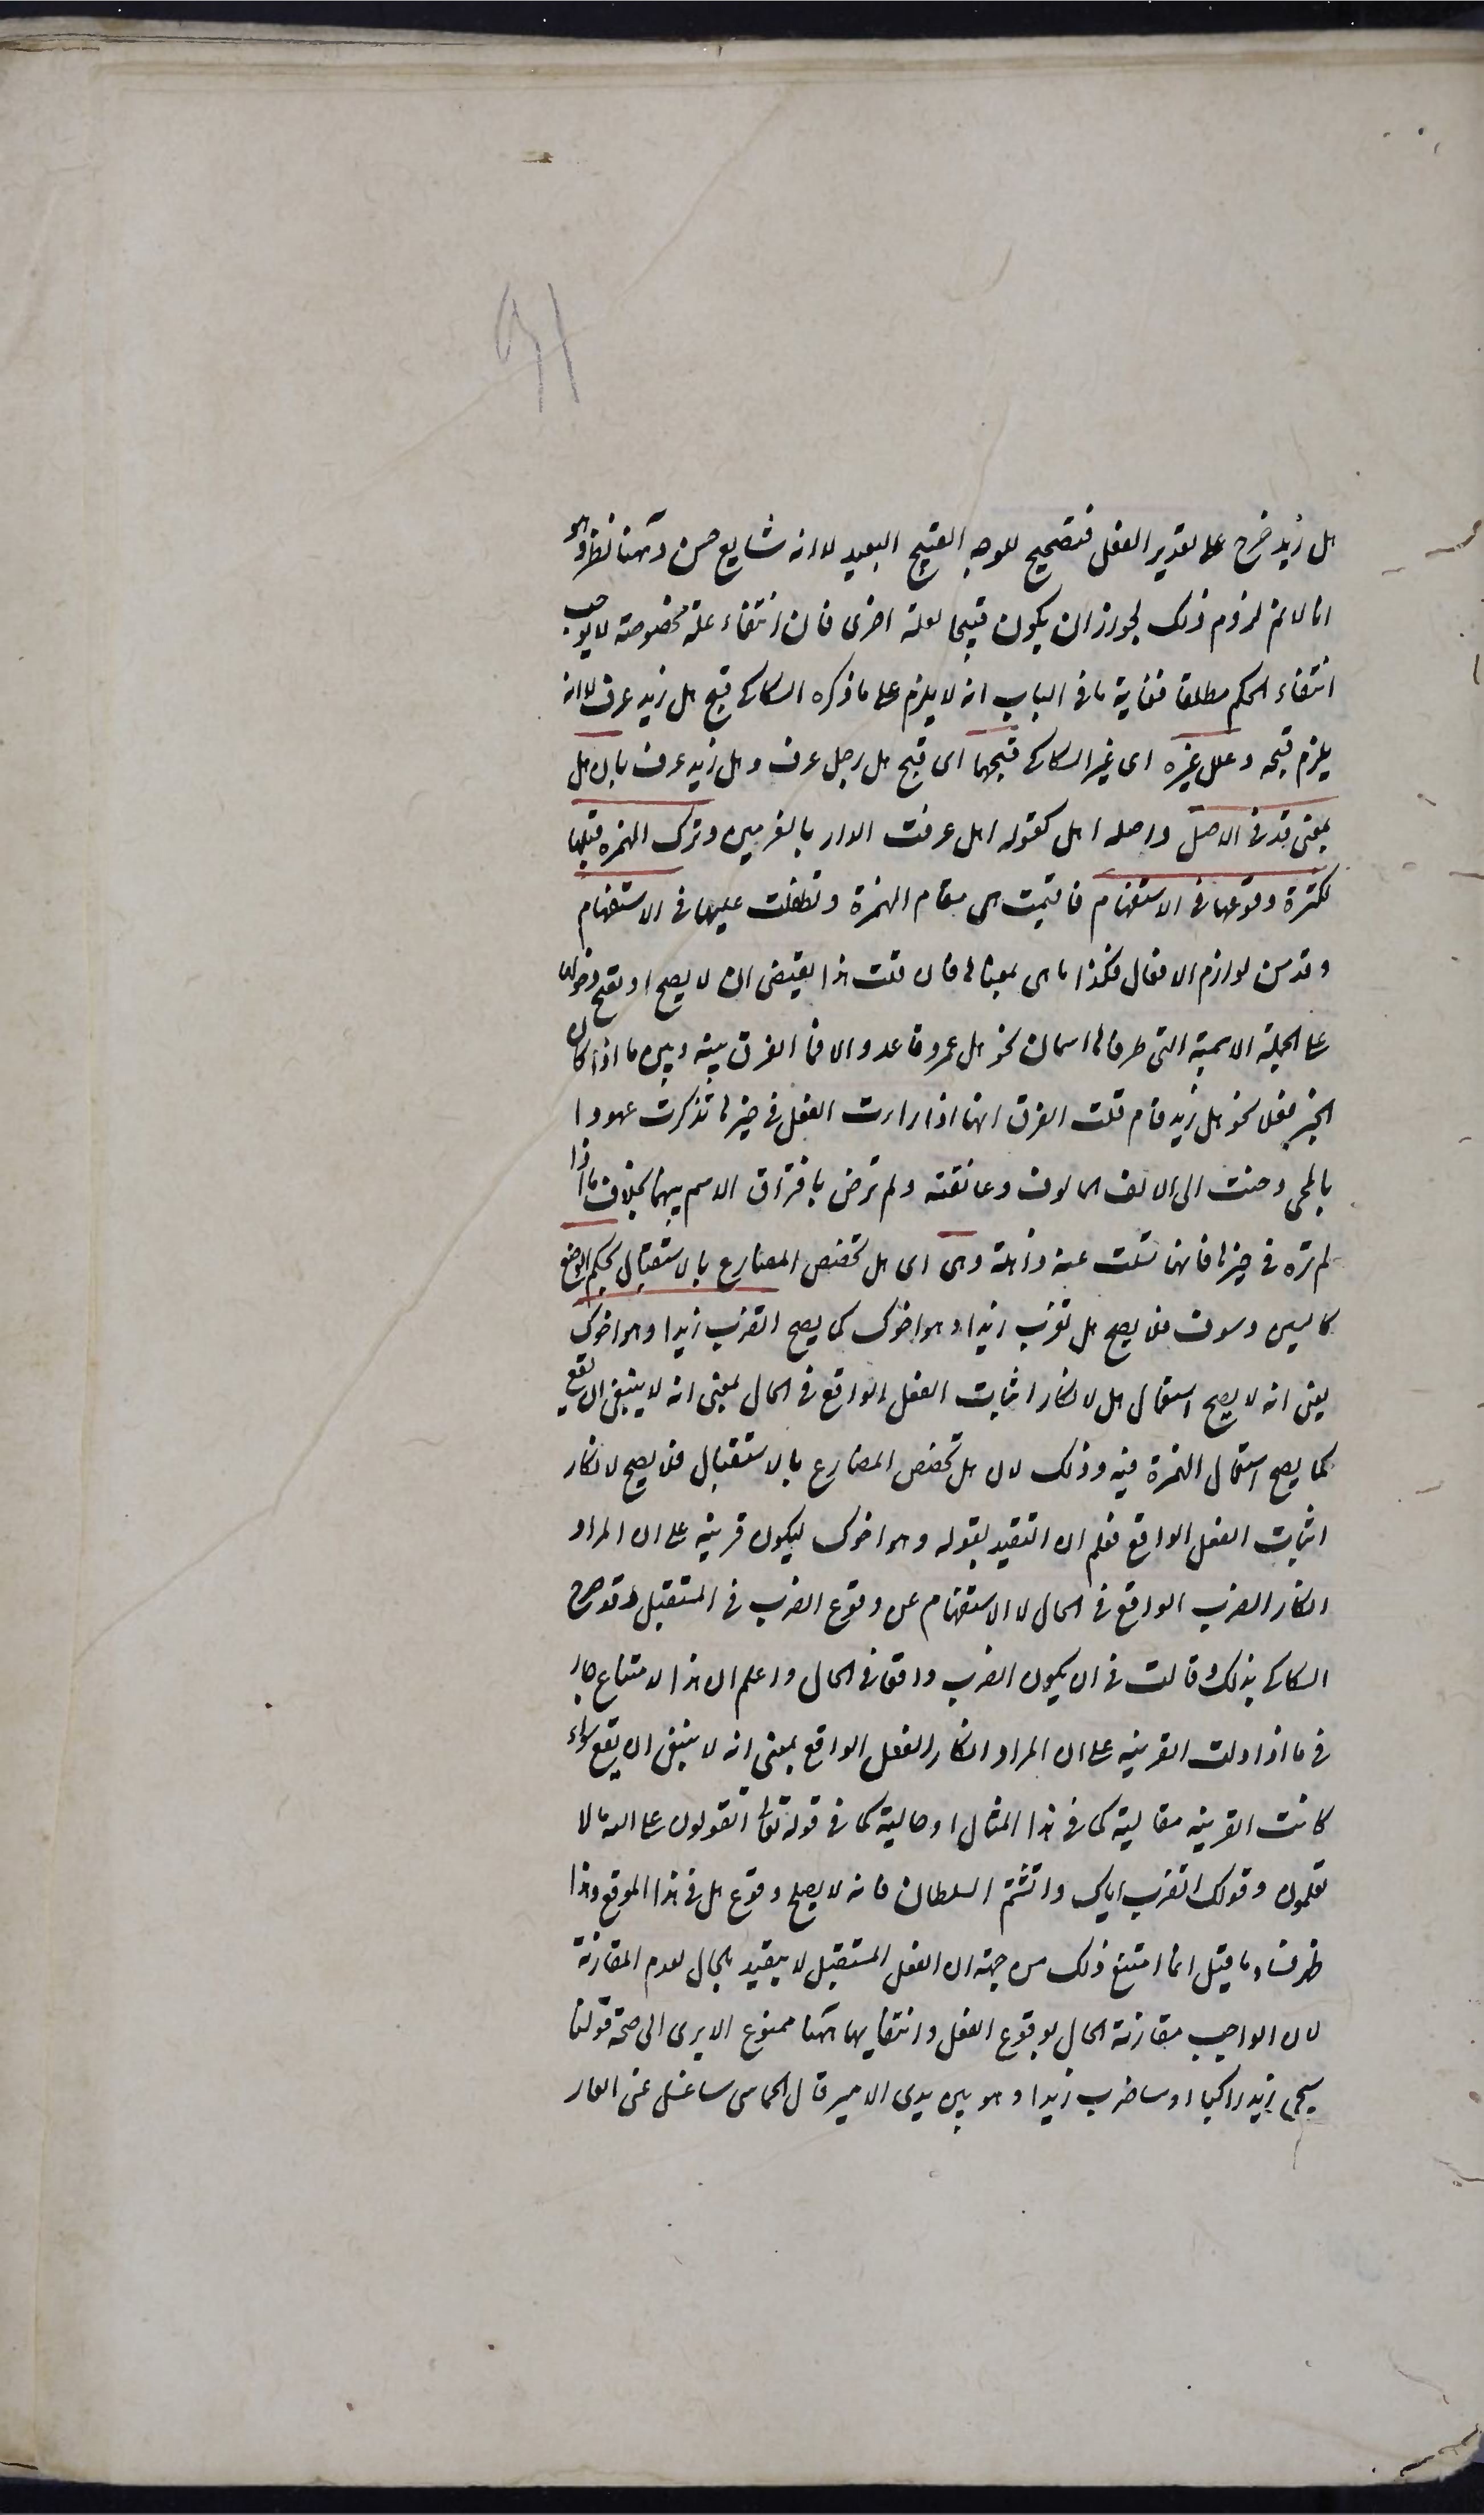 هل زيد خرج على تقدير الفعل فتصحيح للوجه القبيح البعيد لا انه شايع حسن وههنا نظر وهو
انا لا نم لزوم ذلك لجواز ان يكون قبيحا لعلة اخرى فان انتفاء علة مخصوصة لا يوجب
انتفاء الحكم مطلقا فغاية ما فى الباب انه لا يلزم على ما ذكره السكاكى قبح هل زيد عرف لا انه
يلزم قبحه وعلل غيره اى غير السكاكى قبحهما اى قبح هل رجل عرف وهل زيد عرف بان هل
بمعنى قد فى الاصل واصله اهل كقوله اهل عرفت الدار بالغريين وترك الهمزة قبلها
لكثرة وقوعها فى الاستفهام فاقيمت هى مقام الهمزة وتطفلت عليها فى الاستفهام
وقد من لوازم الافعال فكذا ما هى بمعناها فان قلت هذا يقتضى ان لا يصح او تقبح دخولها
على الجملة الاسمية التى طرفاها اسمان نحو هل عمرو قاعد والا فما الفرق بينه وبين ما اذا كان
الخبر فعلا نحو هل زيد قام قلت الفرق انها اذا راءت الفعل فى حيزها تذكرت عهودا
بالحمى وحنت الى الالف المالوف وعانقته ولم ترض بافتراق الاسم بينهما بخلاف ما اذا
لم تره فى حيزها فانها تسلت عنه ذاهلة وهى اى هل تخصص المضارع بالاستقبال بحكم الوضع
كالسين وسوف فلا يصح هل تضرب زيدا وهو اخوك كما يصح اتضرب زيدا وهو اخوك
يعنى انه لا يصح استعمال هل لانكار اثبات الفعل الواقع فى الحال بمعنى انه لا ينبغى ان يقع
كما يصح استعمال الهمزة فيه وذلك لان هل تخصص المضارع بالاستقبال فلا يصح لانكار
اثبات الفعل الواقع فعلم ان التقييد بقوله وهو اخوك ليكون قرينة على ان المراد
انكار الضرب الواقع فى الحال لا الاستفهام عن وقوع الضرب فى المستقبل وقد صرح
السكاكى بذلك وقالت فى ان يكون الضرب واقعا فى الحال واعلم ان هذا الامتناع جار
فى ما اذا دلت القرينة على ان المراد انكار الفعل الواقع بمعنى انه لا ينبغى ان يقع سواء
كانت القرينة مقالية كما فى هذا المثال او حالية كما فى قوله تعالى اتقولون على الله ما لا
تعلمون وقولك اتضرب اباك واتشتم السلطان فانه لا يصلح وقوع هل فى هذا الموقع وهذا
ظرفا وما قيل انما امتنع ذلك من جهة ان الفعل المستقبل لا يتقيد بالحال لعدم المقارنة
لان الواجب مقارنة الحال لوقوع الفعل وانتفايها ههنا ممنوع الا يرى الى صحة قولنا
سيجئ زيد راكبا او ساضرب زيدا وهو بين يدى الامير قال الحماسى ساغسل عنى العار